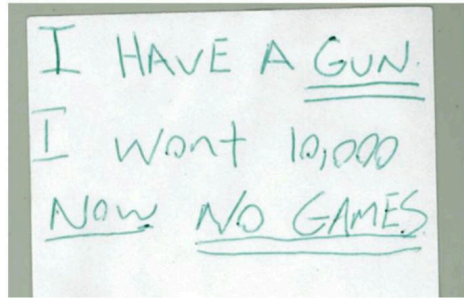 I HAVE A GUN.
I Wont 10,000
NOW NO GAMES